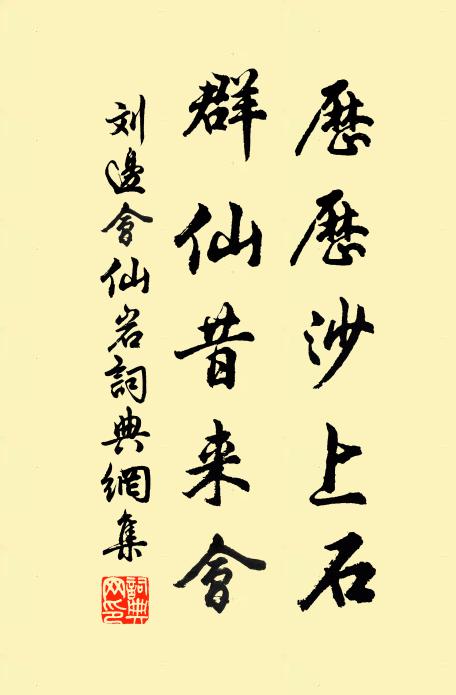 歷歷沙上石
群仙昔来會
刘邊會仙岩詞典網集
詞典
网印